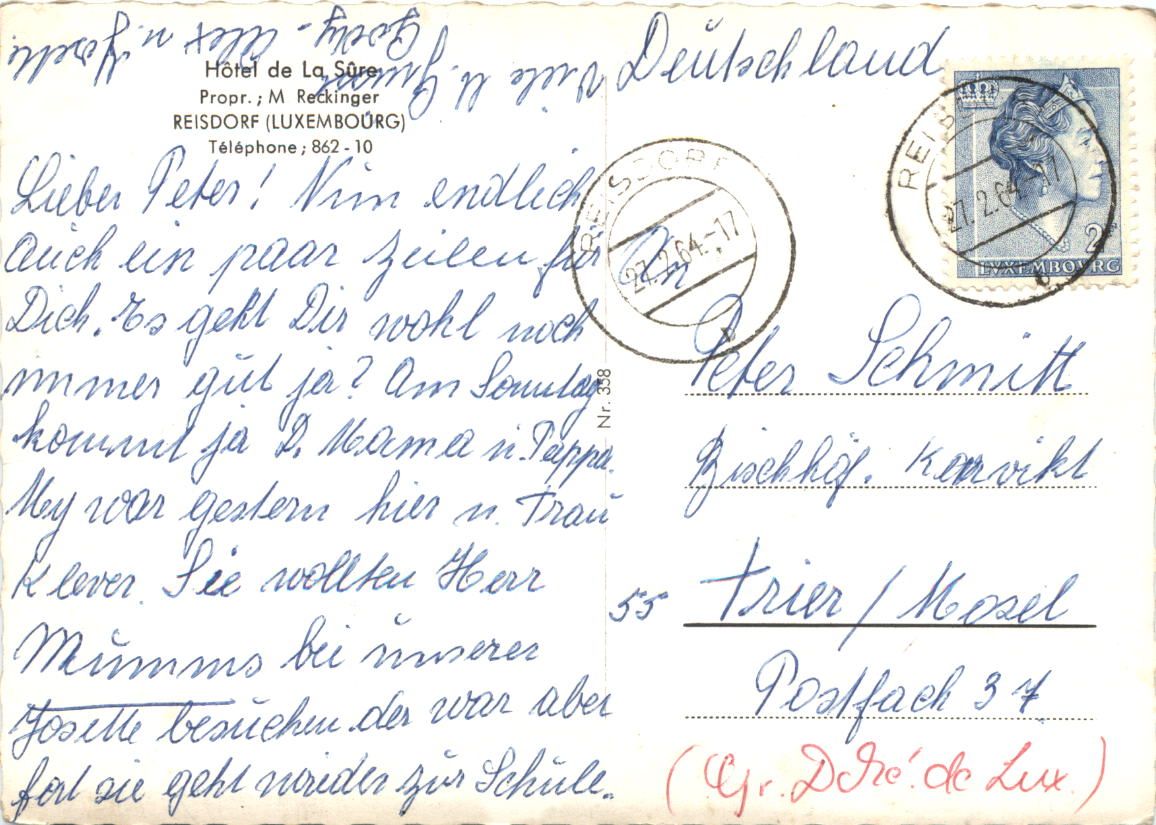 Hôtel de La Sûre
Propr.; M Reckinger
REISDORF (LUXEMBOURG)
Téléphone; 862-10
Lieber Peter! Nun endlich
auch ein paar Zeilen für
Dich. Es geht Dir wohl noch
immer gut ja? Am Sonntag
kommt ja D. Mama u. Pappa.
My war gestern hier u. Frau
Klever. Sie wollten Herr
Mumms bei unserer
Josette besuchen. der war aber
fort sie geht wieder zur Schule.
Viele
u. Josette
Nr. 358
Deutschland
REISDORF
27.2.64.-17
REISDORF
27.2.64.-17
2F
LUXEMBOURG
An
Peter Schmitt
Bischhöf. Konvikt
55 Trier / Mosel
Postfach 37
(Gr. Dché. de Lux.)